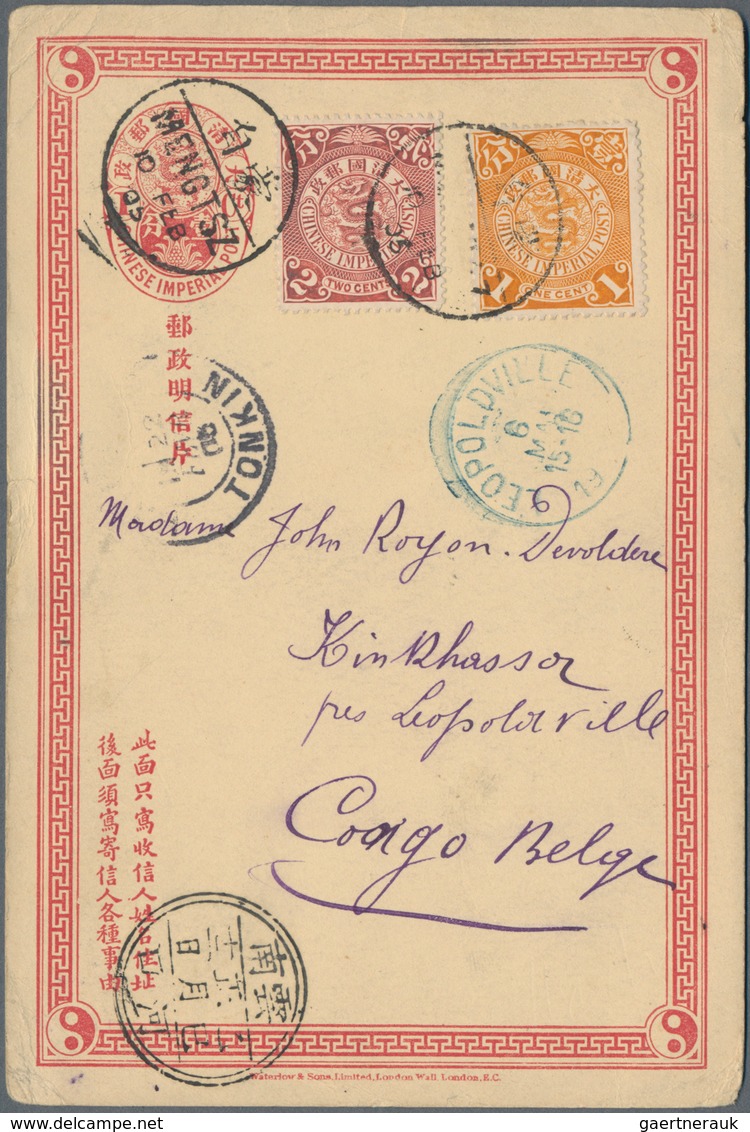 大清國郵政
CHINESE IMPERIAL POST
蒙自
MENGTSZ
10 FEB
05
貳分
大清國郵政
CHINESE IMPERIAL POST
2 TWO CENTS 2
壹分
大清國郵政
CHINESE IMPERIAL POST
1 ONE CENT 1
FEB
郵政明信片
TONKIN
22
LEOPOLDVILLE
6
MAI
15-16
Madame John Royon. Devoldere
Kinkhassa
près Leopoldville
Congo Belge
此面只寫收信人姓名住址
後面須寫寄信人各種事由
雲南
正月
日
Waterlow & Sons, Limited, London Wall, London, E.C.
gaertnerauk